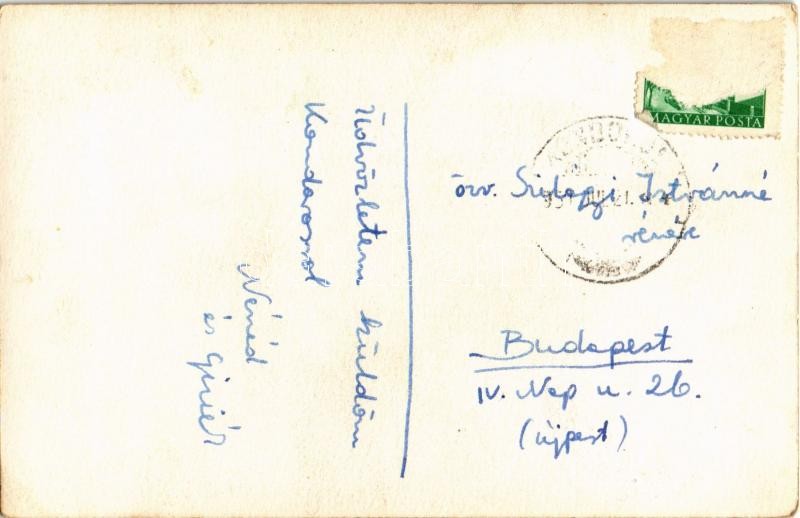 Üdvözletem küldöm
Kondorosról
Nénéd
és
MAGYAR POSTA
KONDOROS
özv. Szilágyi Istvánné
részére
Budapest
IV. Nap u. 26.
(Újpest)